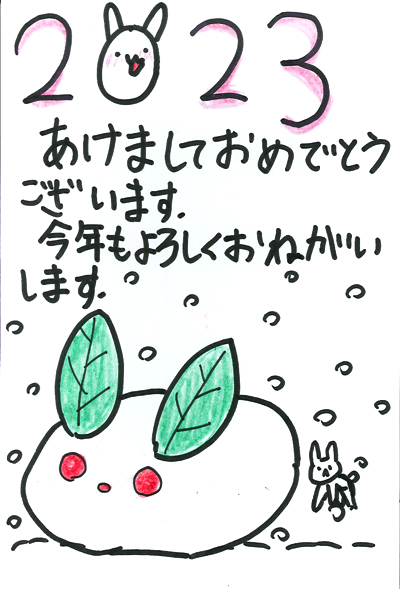 2023
あけましておめでとう
ございます.
今年もよろしくおねがい
します.